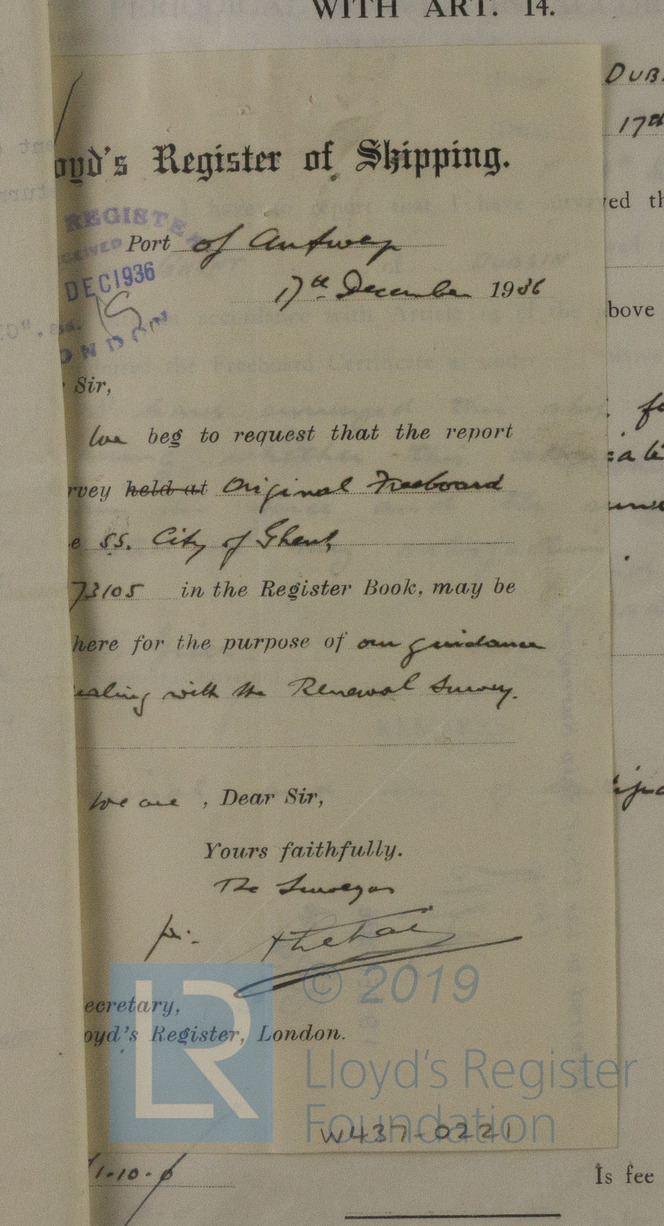 WITH ART. 14.
oyd's Register of Shipping.
REGISTE
DEC 1936
19
ONDON
Port of Antwerp
17th December 1936
Sir,
We beg to request that the report
rvey held at Original Freeboard
e ss. City of Ghent
73105 in the Register Book, may be
here for the purpose of our guidance
ealing with the Renewal Survey.
We are , Dear Sir,
Yours faithfully.
The Surveyors
pr.
ecretary,
oyd's Register, London.
LR
© 2019
Lloyd's Register
Foundation
W437-0221
DUB
17th
ed th
bove
1-10-6
Is fee